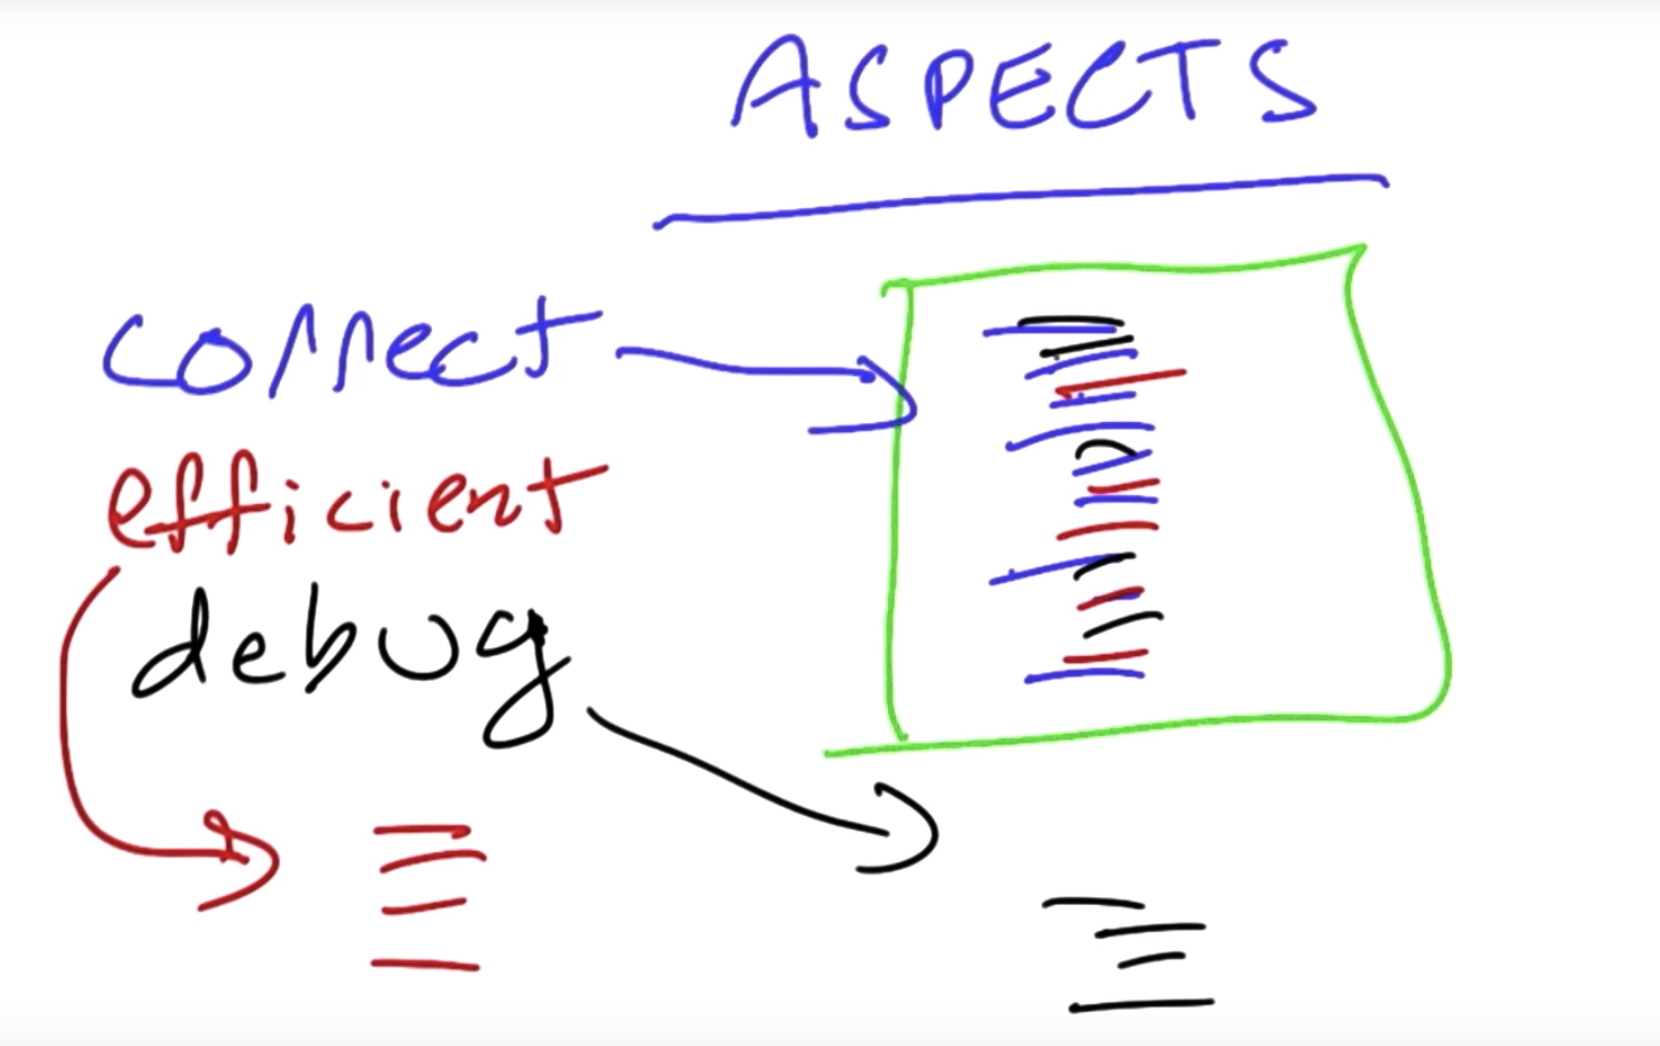 ASPECTS
correct
efficient
debug